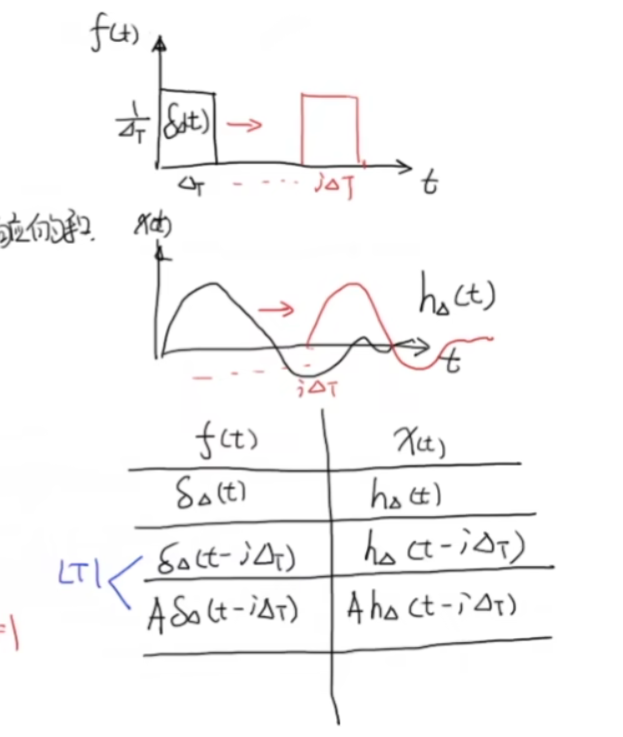 f(t)
1/ΔT δΔ(t) →
ΔT - - - - - iΔT t
x(t)
→ hΔ(t)
t
- - - - iΔT
f(t) x(t)
δΔ(t) hΔ(t)
LTI
δΔ(t-iΔT) hΔ(t-iΔT)
AδΔ(t-iΔT) AhΔ(t-iΔT)
=1